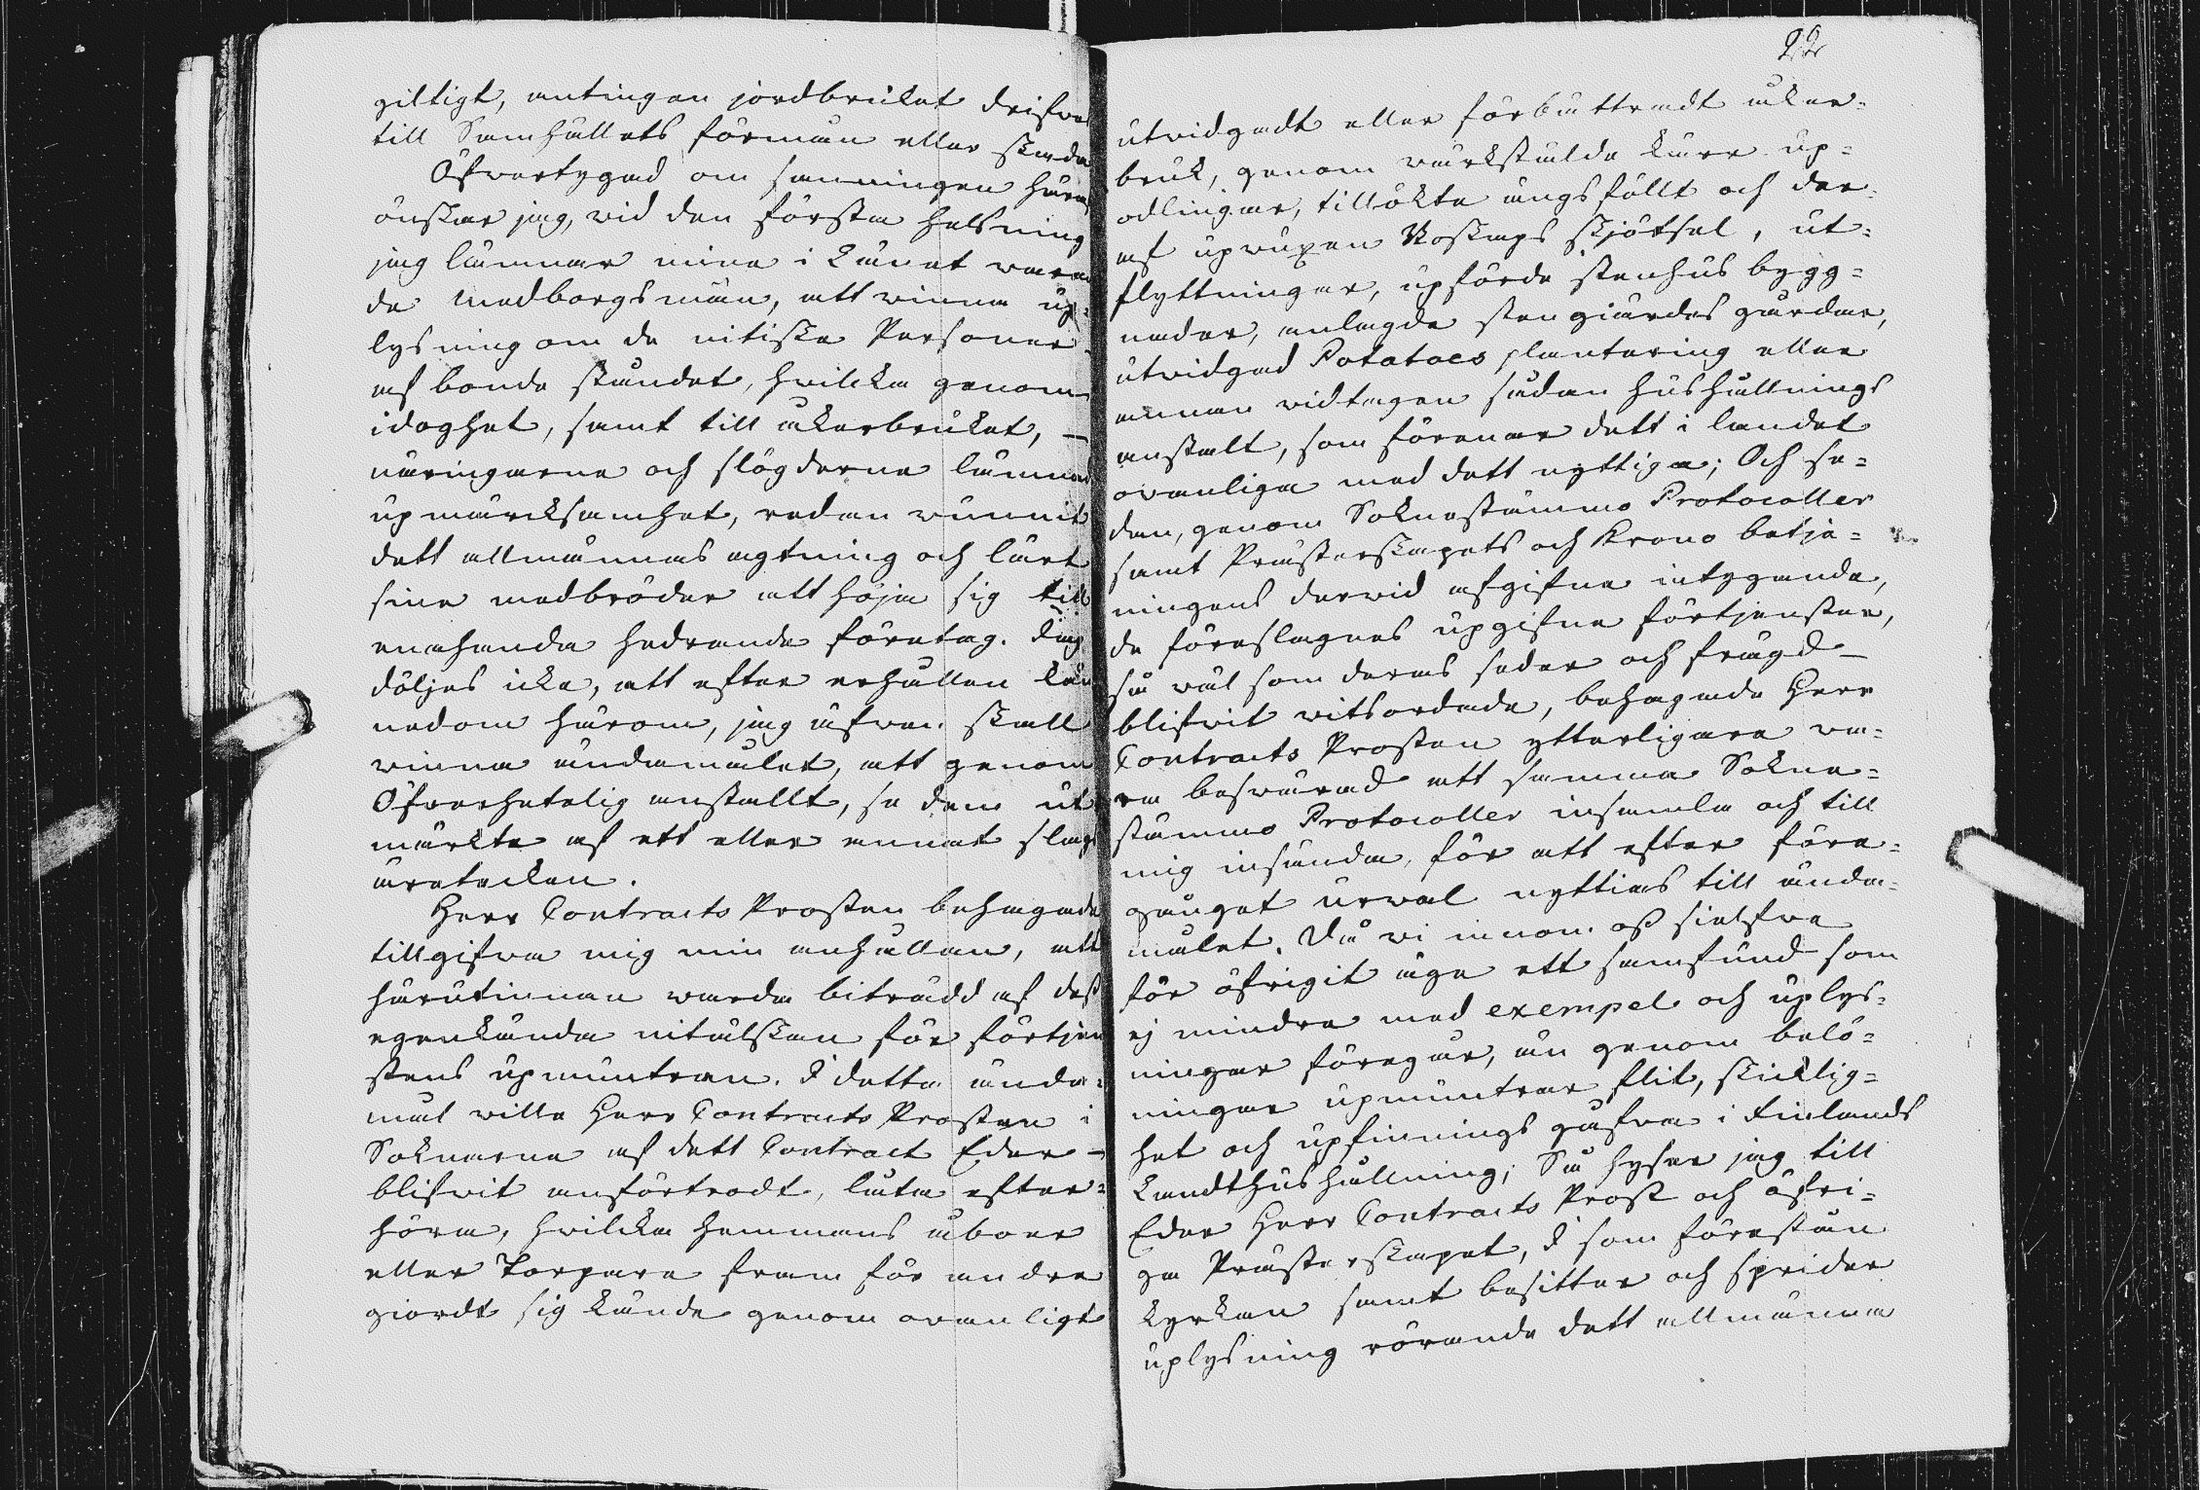 giltigt, antingen jordbruket drifves
till Samhällets förmån eller skada
Öfvertygad om sanningen häraf
önskar jag, vid den första helsning
jag lämnar mina i Länet waran
de medborgsmän, att vinna up=
lysning om de nitiska Personer
af bonde ståndet, hvilcka genom
idoghet, samt till åkerbruket, —
näringarne och slögderne lämnad
upmärcksamhet, redan vunnit
dett allmännas agtning och lärt
sina medbröder att höja sig till
enahanda hedrande företag. Dig
döljes icke, att efter erhållen kän
nedom härom, jag äfven skall
vinna ändamålet, att genom
Öfverhetelig anstallt, se dem ut
märkte af ett eller annat slags
äretecken.
Herr Contracts Prosten behagade
tillgifva mig min anhållan, att
härutinnan warda biträdd af dess
egenkända nitälskan för förtjen
stens upmuntran. I detta ända=
mål wille Herr Contracts Prosten i
Soknarne af dett Contract Eder —
blifvit anförtrodt, låta efter=
höra, hvilcka hemmans åboer
eller Torpare fram för andre
giordt sig kände genom ovanligt
22
utvidgadt eller förbättradt åker=
bruk, genom wärkstälde kärr up=
odlingar, tillökte ängsfällt och der=
af upvuxen Boskaps skjötsel, ut=
flyttningar, upförde stenhus bygg=
nader, anlagde stengiärdes gårdar,
utvidgad Potatoes plantering eller
annan vidtagen sådan hushållnings
anstalt, som förenar dett i landet
ovanliga med dett nyttiga; Och se=
dan, genom Soknestämmo Protocoller
samt Prästerskapets och Krono betje=
ningens dervid afgifne intygande,
de föreslagnes upgifne förtjenster,
så wäl som deras seder och frägd —
blifvit vitsordade, behagade Herr
Contracts Prosten ytterligare va=
ra besvärad att samma Sokne=
stämmo Protocoller insamla och till
mig insända, för att efter före=
gånget urval nyttias till ända=
målet. Då vi innom oss sielfve
för öfrigit äga ett samfund som
ej mindre med exempel och uplys=
ningar föregår, än genom belö=
ningar upmuntrar flit, skicklig=
het och upfinnings gåfva i Finlands
Landthushållning; Så hyser jag till
Eder Herr Contracts Prost och öfri=
ga Prästerskapet, I som förestån
kyrkan samt besitter och sprider
uplysning rörande dett allmänna